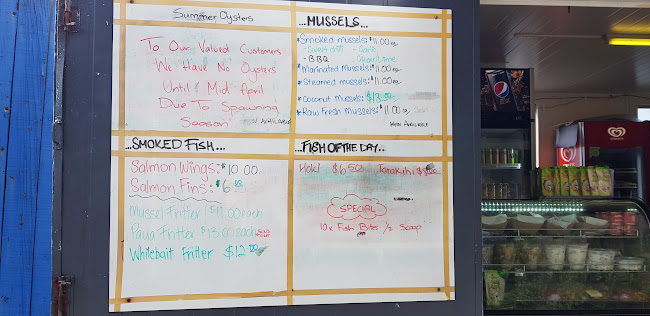 Summer Oysters
To Our Valued Customers
We Have No Oysters
Until Mid April
Due To Spawning
Season
...MUSSELS...
* Smoked mussels: $11.00 ea
- Sweet chilli - Garlic
- BBQ
* Marinated Mussels: $11.00 ea
* Steamed mussels: $11.00 ea
* Coconut Mussels: $13.50
* Raw Fresh Mussels: $11.00
When Available
...SMOKED FISH...
Salmon Wings: $10.00
Salmon Fins: $6.00
Mussel Fritter $11.00 each
Paua Fritter $13.00 each SOLD OUT
Whitebait Fritter $12.00
...FISH OF THE DAY...
Hoki $6.50 Tarakihi
SPECIAL
10x Fish Bites 1/2 Scoop
pepsi